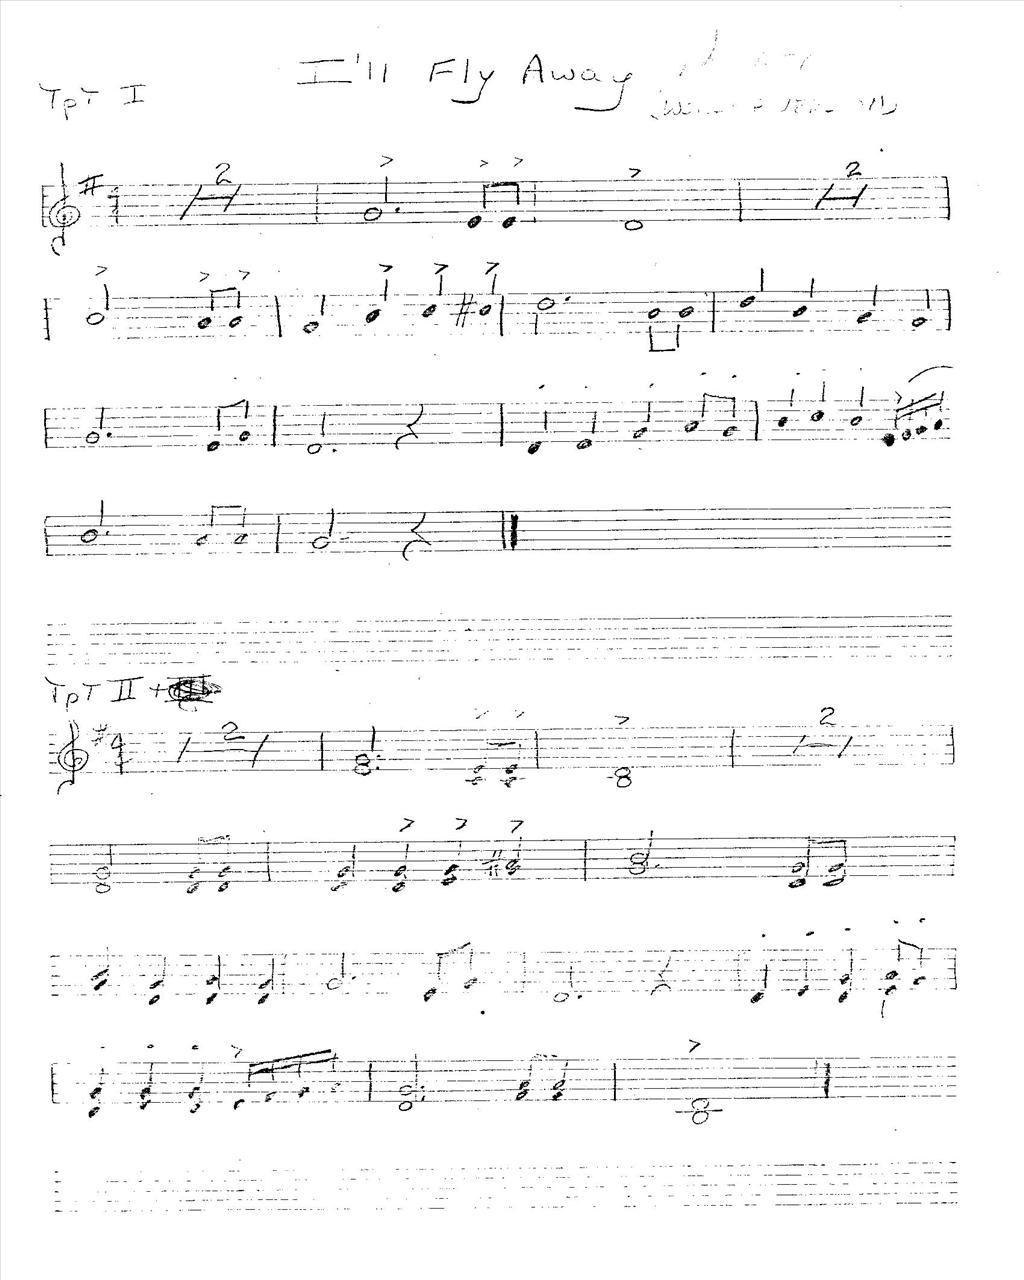 I'll Fly Away
TpT I
2
2
TpT II +
4
2
2